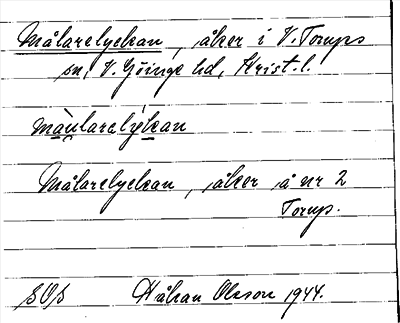 Målarelyckan, åker i V. Torups
sn, V. Göinge hd, Krist. l.
màu̯larelýkan
Målarelyckan, åker å nr 2
Torup.
SOS Håkan Olsson 1944.